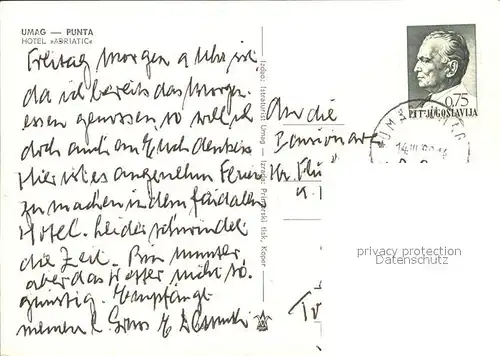 UMAG — PUNTA
HOTEL »ADRIATIC«
Freitag Morgen 9 Uhr ist
da ich bereits das Morgen
essen genossen, so will ich
doch auch an Euch denken
Hier ist es angenehm Ferien
zu machen in dem feudalen
Hotel. Leider schwindet
die Zeit. Bin munter,
aber das Wetter nicht so
günstig. Empfangt
meinen Gruss
Izdao: Istraturist Umag — Izrada: Primorski tisk, Koper
0.75
PTT JUGOSLAVIJA
An die
Pensionäre
privacy protection
Datenschutz